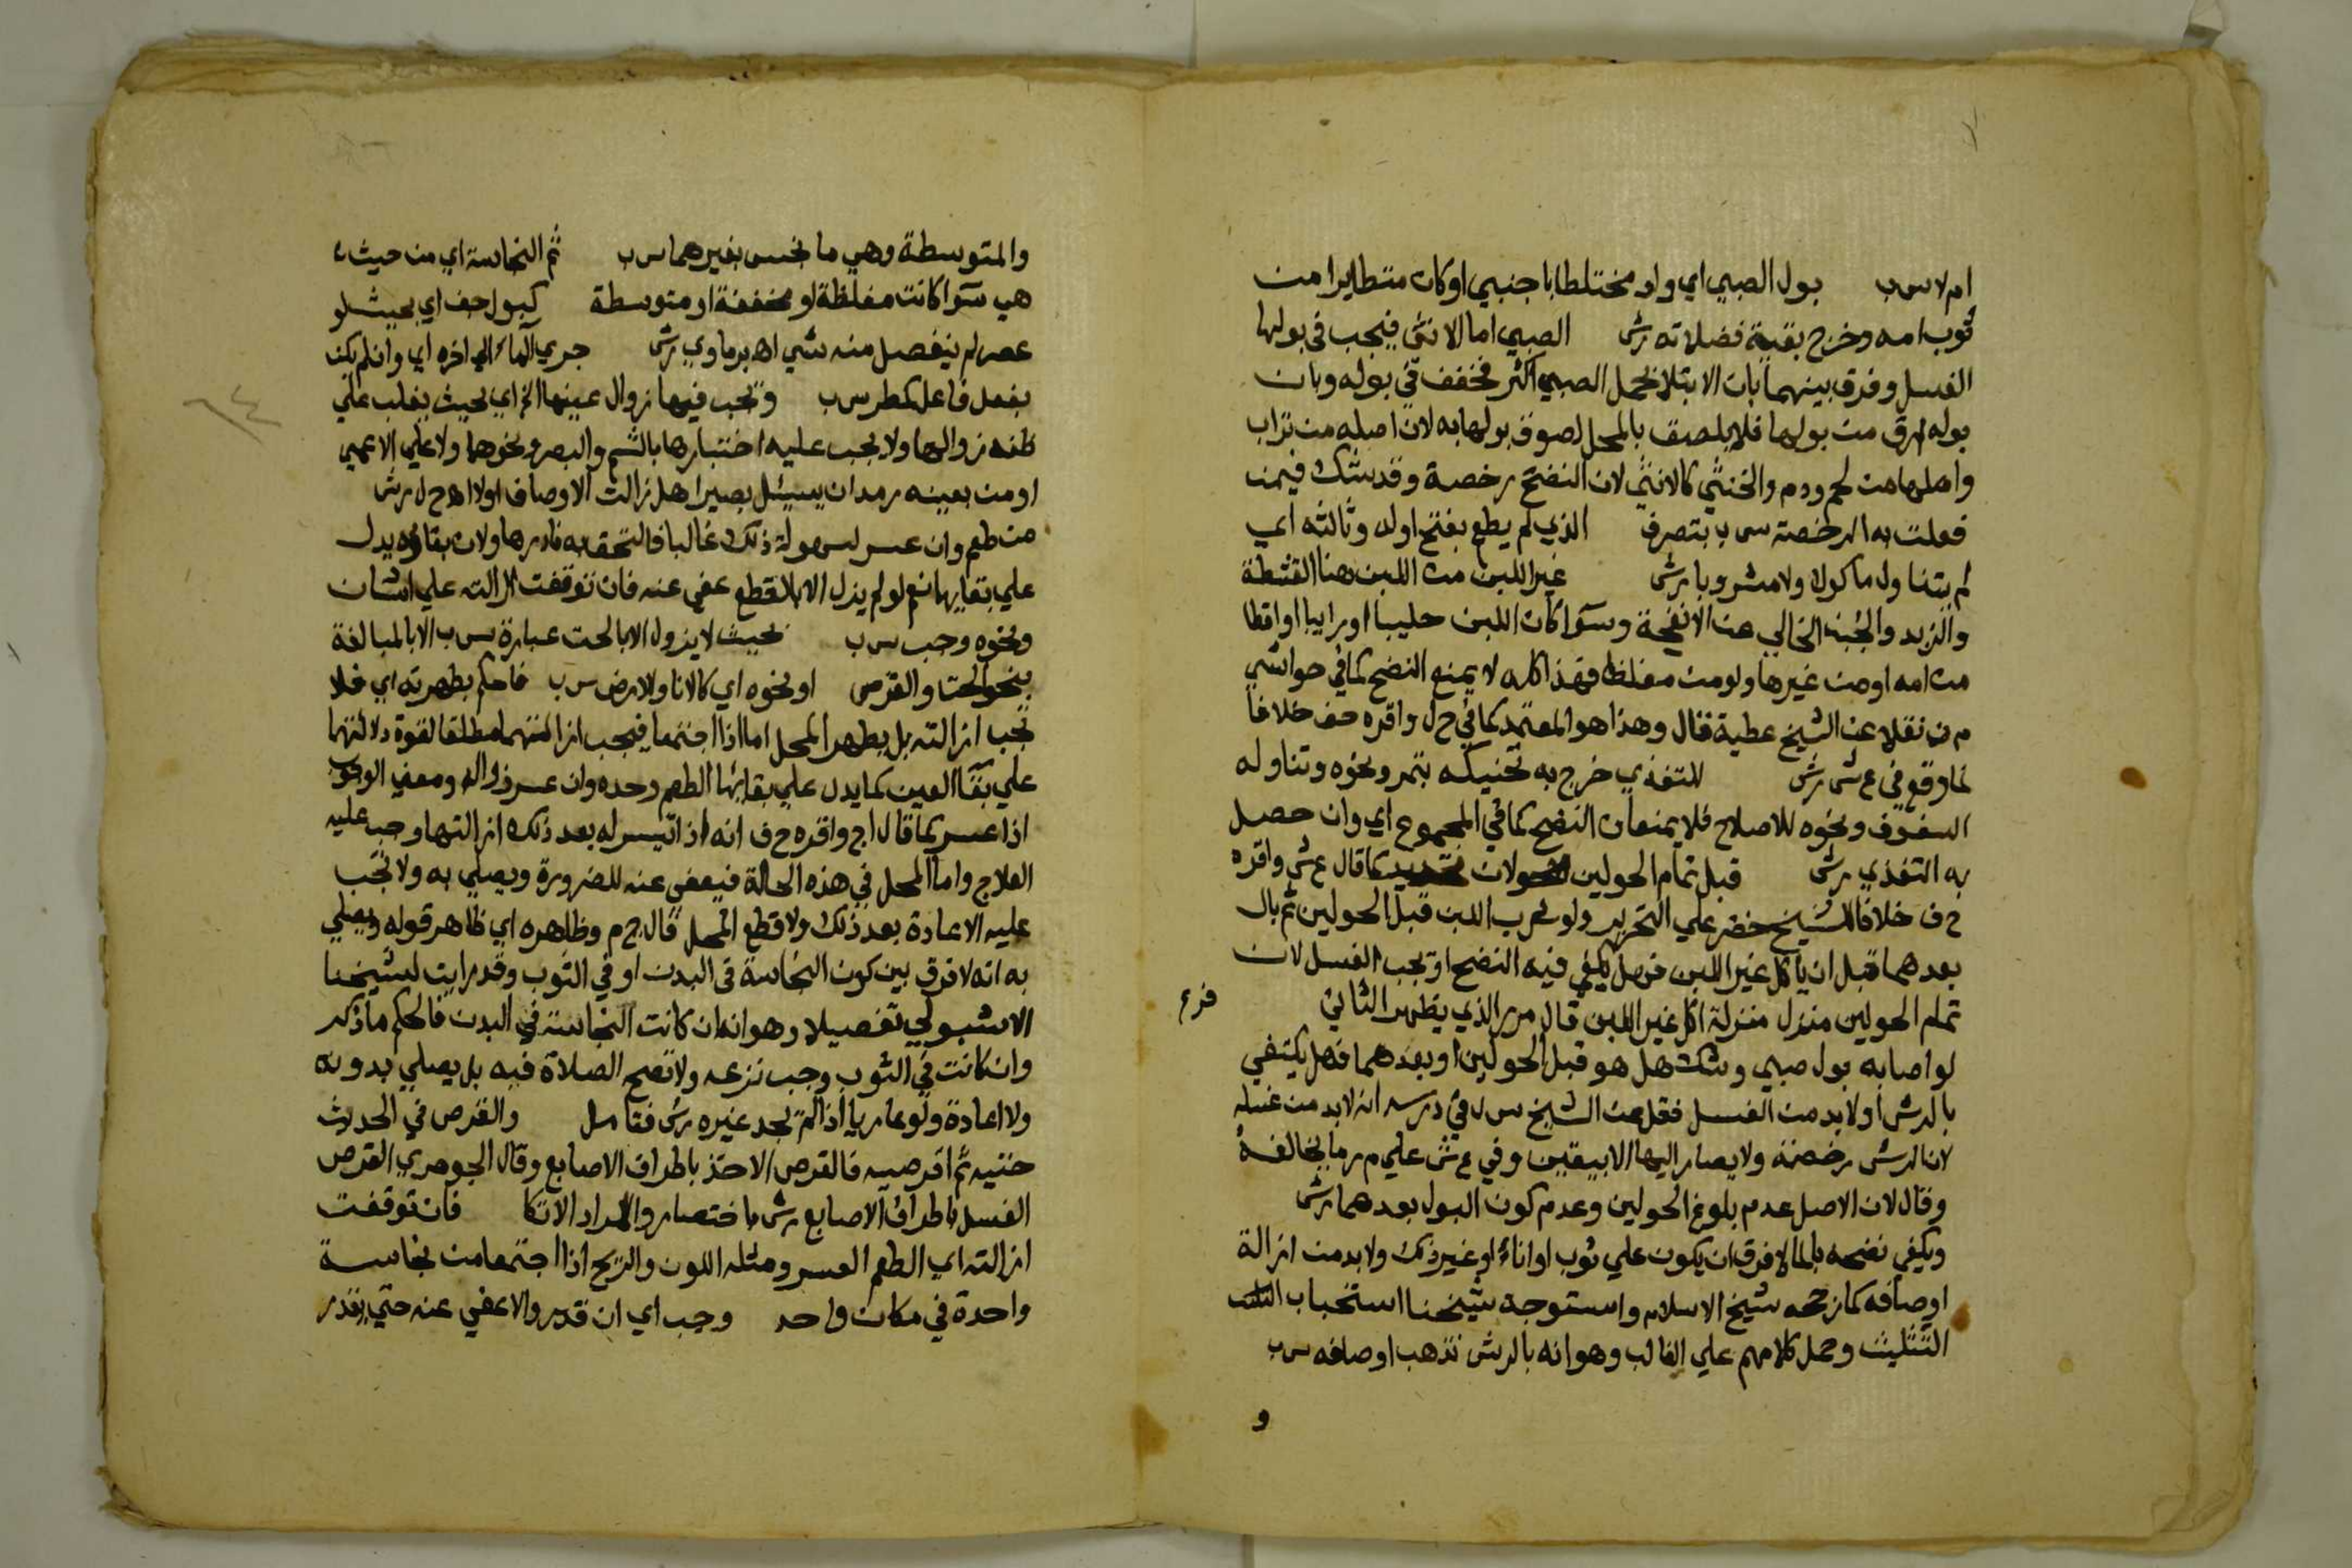 ام لا س ب بول الصبي اي ولو مختلطا باجنبي او كان متطايرا من
ثوب امه وخرج بقية فضلاته رش الصبي اما الانثى فيجب في بولها
الغسل وفرق بينهما بان الابتلا بحمل الصبي اكثر فخفف في بوله وبان
بوله ارق من بولها فلا يلصق بالمحل لصوق بولها به لان اصله من تراب
واصلها من لحم ودم والخنثي كالانثي لان النضح رخصة وقد شك فيمن
فعلت به الرخصة س ب بتصرف الذي لم يطع بفتح اوله وثالثه اي
لم يتناول ماكولا ولا مشروبا رش غير اللبن من اللبن هنا القشطة
والزبد والجبن الخالي عن الانفحة وسوآ كان اللبن حليبا او رايبا او اقطا
من امه او من غيرها ولو من مغلظ فهذا كله لا يمنع النضح كما في حواشي
م ر نقلا عن الشيخ عطية قال وهذا هو المعتمد كما في ح ل واقره حف خلافا
لما وقع في ع ش رش للتغذي خرج به تحنيكه بتمر ونحوه وتناوله
السفوف ونحوه للاصلاح فلا يمنعان النضح كما في المجموع اي وان حصل
به التغذي رش قبل تمام الحولين كما قال ع ش واقره
ح ف خلافا للشيخ خضر علي التحرير ولو شرب اللبن قبل الحولين ثم بال
بعدهما قبل ان ياكل غير اللبن فهل يكفي فيه النضح او يجب الغسل لان
تمام الحولين منزل منزلة اكل غير اللبن قال م ر الذي يظهر الثاني فرع
لو اصابه بول صبي وشك هل هو قبل الحولين او بعدهما فهل يكتفي
بالرش او لا بد من الغسل فقل عن الشيخ س ل في درسه انه لا بد من غسله
لان الرش رخصة ولا يصار اليها الا بيقين وفي ع ش علي م ر ما يخالفه
وقال لان الاصل عدم بلوغ الحولين وعدم كون البول بعدهما رش
ويكفي نضحه بالما لا فرق ان يكون علي ثوب او اناء او غير ذلك ولا بد من ازالة
اوصافه كما رجحه شيخ الاسلام واستوجه شيخنا استحباب
التثليث وحمل كلامهم علي الغالب وهو انه بالرش تذهب اوصافه س ب
و
والمتوسطة وهي ما نجس بغيرهما س ب ثم النجاسة اي من حيث
هي سوآ كانت مغلظة او مخففة او متوسطة كبول جف اي بحيث لو
عصر لم ينفصل منه شي اهـ برماوي رش جري الماء الي اخره اي وان لم يكن
بفعل فاعل كمطر س ب وتجب فيها زوال عينها الخ اي بحيث يغلب علي
ظنه زوالها ولا يجب عليه اختبارها بالشم والبصر ونحوهما ولا علي الاعمي
او من بعينه رمد ان يسئل بصيرا هل زالت الاوصاف اولا اهـ ح ل رش
من طعم وان عسر لسهولة ذلك غالبا فالتحق به نادرها ولان بقاؤه يدل
علي بقايها نعم لو لم يزل الا بالقطع عفي عنه فان توقفت ازالته علي اشنان
ونحوه وجب س ب بحيث لا يزول الا بالحت عبارة س ب الا بالمبالغة
بنحو الحت والقرص او نحوه اي كالانا والارض س ب فاحكم بطهرته اي فلا
تجب ازالته بل يطهر المحل اما اذا اجتمعا فيجب ازالتهما مطلقا لقوة دلالتهما
علي بقآ العين كما يدل علي بقائها الطعم وحده وان عسر زواله ومعني الوجوب
اذا عسر كما قال اج واقره ح ف انه اذا تيسر له بعد ذلك ازالتها وجب عليه
العلاج واما المحل في هذه الحالة فيعفي عنه للضرورة ويصلي به ولا تجب
عليه الاعادة بعد ذلك ولا قطع المحل قال ج م وظاهره اي ظاهر قوله ويصلي
به انه لا فرق بين كون النجاسة في البدن او في الثوب وقد رايت لشيخنا
الاشبولي تفصيلا وهو انه ان كانت النجاسة في البدن فالحكم ما ذكر
وان كانت في الثوب وجب نزعه ولا تصح الصلاة فيه بل يصلي بدونه
ولا اعادة ولو عاريا اذا لم يجد غيره رش فتامل والقرص في الحديث
حتيه ثم اقرصيه فالقرص الاخذ باطراف الاصابع وقال الجوهري القرص
الغسل باطراف الاصابع رش باختصار والمراد الاتكا فان توقفت
ازالته اي الطعم العسر ومثله اللون والريح اذا اجتمعا من نجاسة
واحدة في مكان واحد وجب اي ان قدر والا عفي عنه حتي يقدر